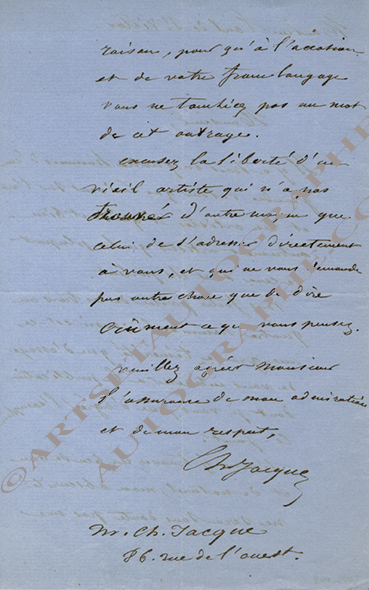 raison, pour qu'à l'occasion
et de votre franc langage
vous ne touchiez pas un mot
de cet outrage.
excusez la liberté d'un
vieil artiste qui n'a pas
trouvé d'autre moyen que
celui de s'adresser directement
à vous, et qui ne vous demande
pas autre chose que de dire
crûment ce que vous pensez.
veuillez agréer Monsieur
l'assurance de mon admiration
et de mon respect,
Ch. Jacque
M. Ch. Jacque
86. rue de l'ouest.
©ARTSETAUTOGRAPHES.COM
AUTOGRAPHE.COM